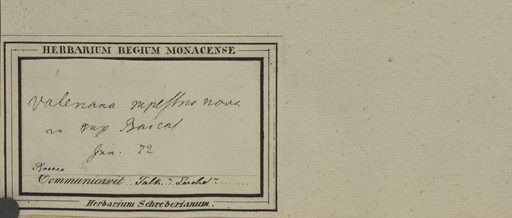 HERBARIUM REGIUM MONACENSE
Valeriana rupestris nova
in rup Baical
Jun. 72
Rossia
Communicavit Falk
Herbarium Schreberianum.